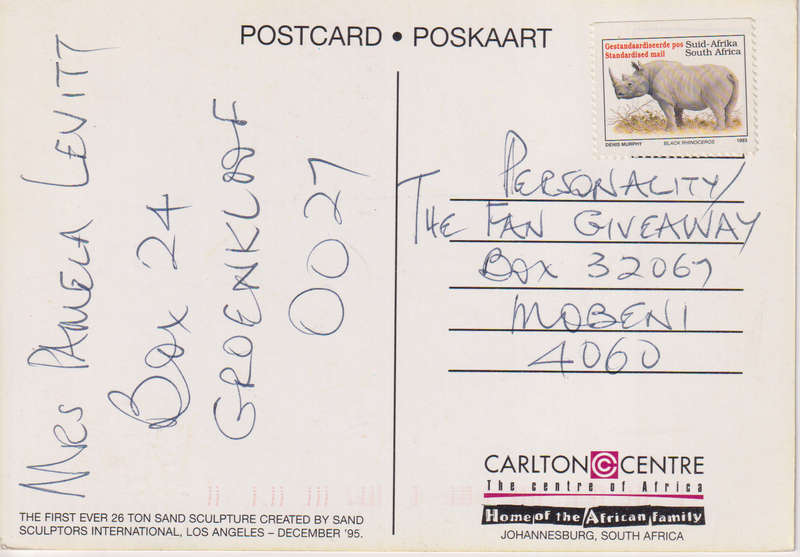 POSTCARD • POSKAART
Gestandaardiseerde pos
Standardised mail
Suid-Afrika
South Africa
DENIS MURPHY
BLACK RHINOCEROS
1993
Mrs PAMELA LEVITT
Box 24
GROENKLOOF
0027
PERSONALITY/
THE FAN GIVEAWAY
Box 32067
MOBENI
4060
THE FIRST EVER 26 TON SAND SCULPTURE CREATED BY SAND
SCULPTORS INTERNATIONAL, LOS ANGELES – DECEMBER '95.
CARLTON CENTRE
The centre of Africa
Home of the African family
JOHANNESBURG, SOUTH AFRICA